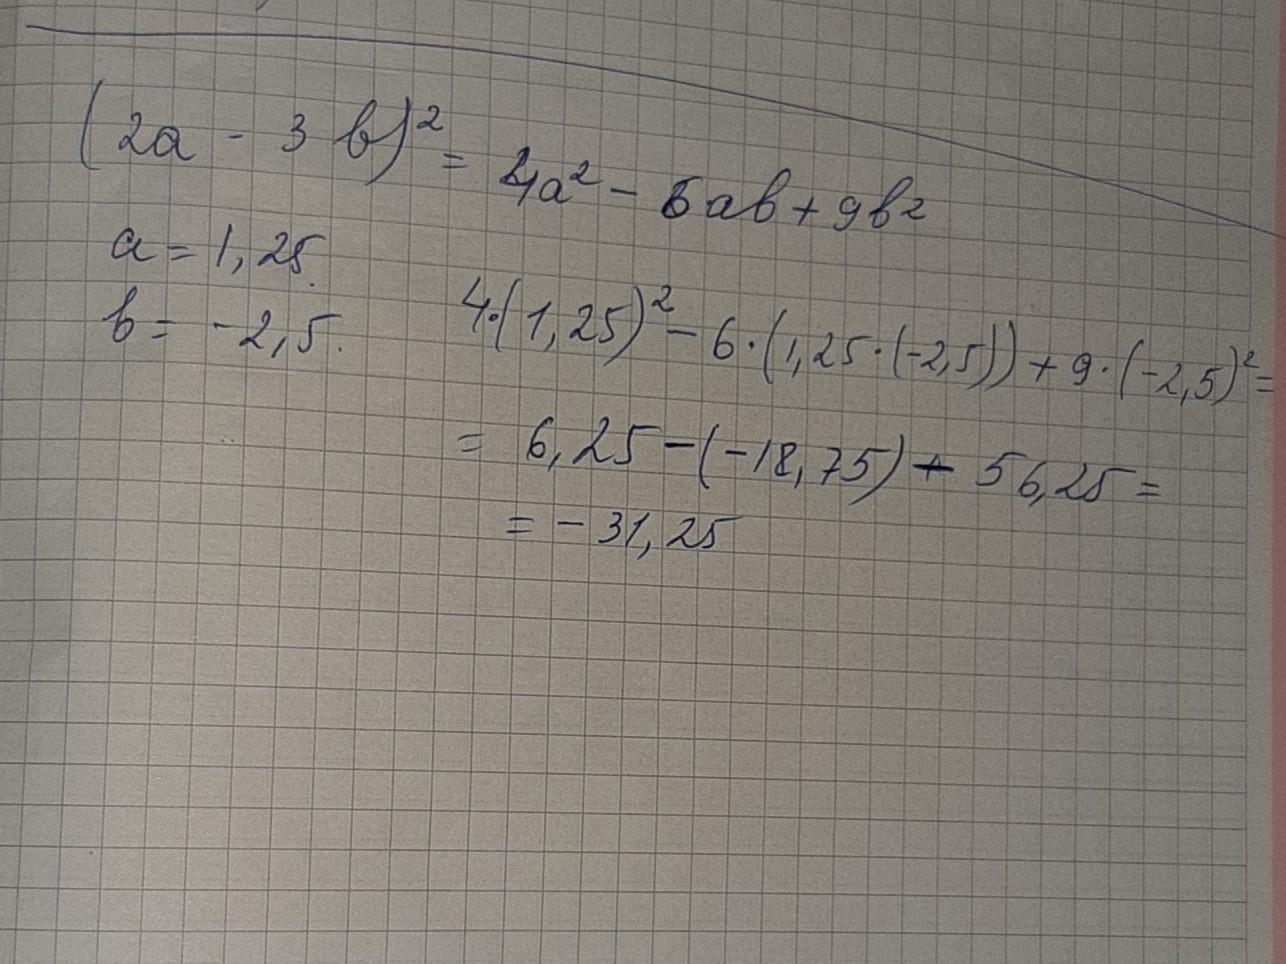 (2a - 3b)² = 4a² - 6ab + 9b²
a = 1,25.
b = -2,5.
4·(1,25)² - 6·(1,25·(-2,5)) + 9·(-2,5)² =
= 6,25 - (-18,75) + 56,25 =
= - 31,25